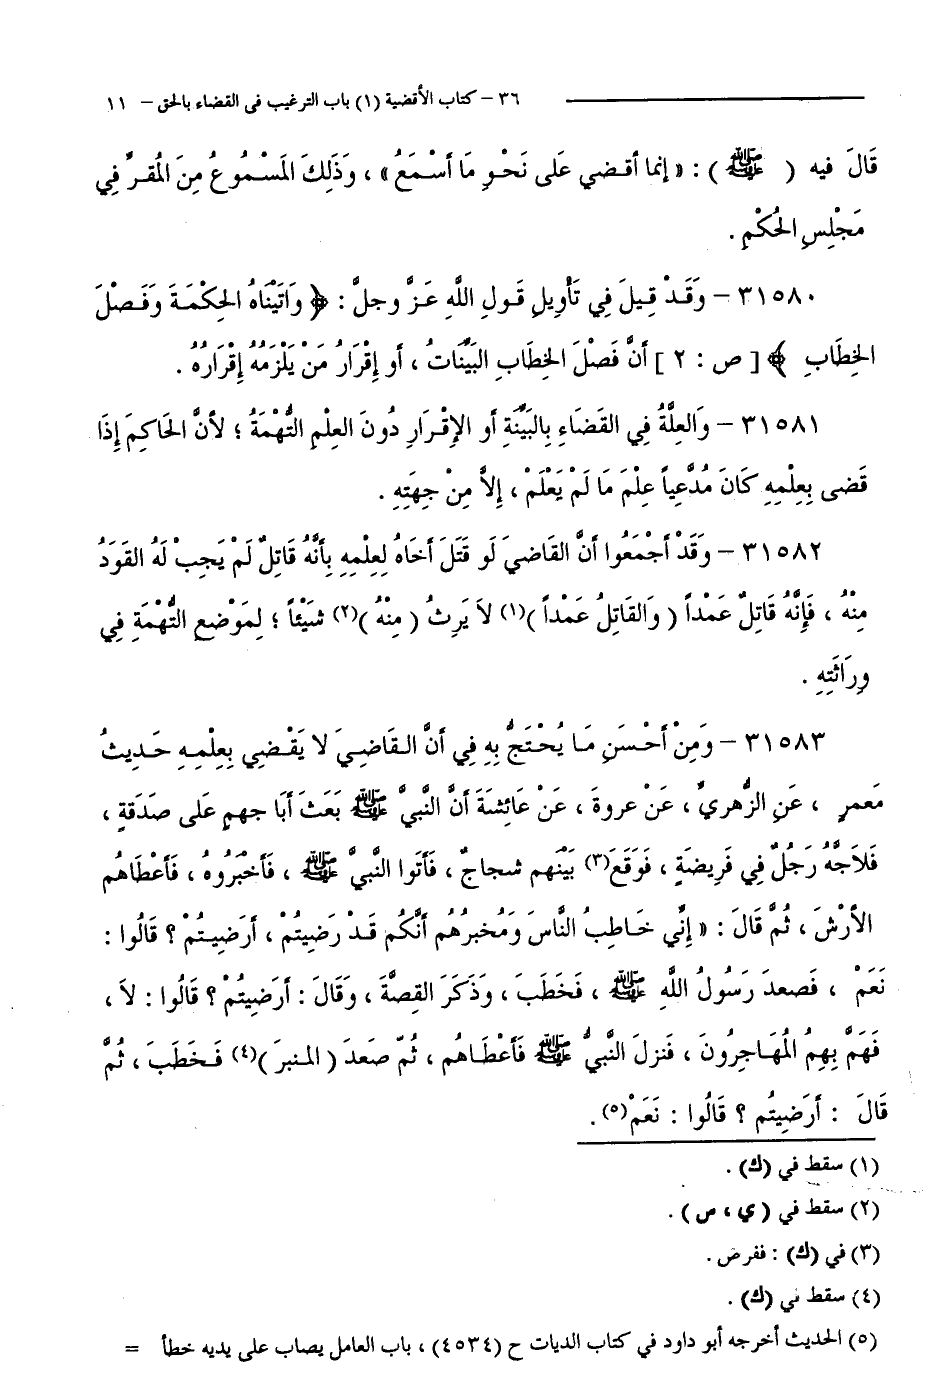 ٣٦ – كتاب الأقضية (١) باب الترغيب فى القضاء بالحق – ١١
قَالَ فيه ( ﷺ ) : « إنما أقضي عَلى نَحْوِ مَا أسْمَعُ » ، وَذَلِكَ المَسْمُوعُ مِنَ المُقرِّ فِي
مَجْلِسِ الحُكْمِ .
٣١٥٨٠ – وَقَدْ قِيلَ فِي تَأْوِيلِ قَولِ اللَّهِ عَزَّ وجلَّ : ﴿ وَاتَيْنَاهُ الحِكْمَةَ وَفَصْلَ
الخِطَابِ ﴾ [ ص : ٢ ] أنَّ فَصْلَ الخِطَابِ البَيِّنَاتُ ، أو إقْرَارُ مَنْ يَلْزَمُهُ إقْرَارُهُ .
٣١٥٨١ – وَالعِلَّةُ فِي القَضَاءِ بِالبَيِّنَةِ أو الإقْرَارِ دُونَ العِلْمِ التُّهْمَةُ ؛ لأنَّ الحَاكِمَ إذَا
قَضى بِعِلْمِهِ كَانَ مُدَّعِياً عِلْمَ مَا لَمْ يَعْلَمْ ، إلاَّ مِنْ جِهَتِهِ .
٣١٥٨٢ – وَقَدْ أجْمَعُوا أنَّ القَاضيَ لَو قَتَلَ أخَاهُ لِعِلْمِهِ بِأنَّهُ قَاتِلٌ لَمْ يَجِبْ لَهُ القَوَدُ
مِنْهُ ، فَإنَّهُ قَاتِلٌ عَمْداً ( وَالقَاتِلُ عَمْداً )(١) لاَ يَرِثُ ( مِنْهُ )(٢) شَيْئاً ؛ لِمَوْضعِ التُّهْمَةِ فِي
وِرَاثَتِهِ .
٣١٥٨٣ – وَمِنْ أحْسَنِ مَا يُحْتَجُّ بِهِ فِي أنَّ القَاضِيَ لا يَقْضِي بِعِلْمِهِ حَدِيثُ
مَعمرٍ ، عَنِ الزُّهريِّ ، عَنْ عروةَ ، عَنْ عَائِشَةَ أنَّ النَّبيَّ ﷺ بَعَثَ أبَا جهمٍ عَلى صَدَقَةٍ ،
فَلاَجَّهُ رَجُلٌ فِي فَرِيضَةٍ ، فَوَقَعَ(٣) بَيْنَهم شجاجٌ ، فَأتَوا النَّبيَّ ﷺ ، فَأخْبَرُوهُ ، فَأعْطَاهُم
الأرْشَ ، ثُمَّ قَالَ : « إنِّي خَاطِبُ النَّاسَ وَمُخبِرُهُم أنَّكُم قَدْ رَضِيتُمْ ، أرَضِيتُمْ ؟ قَالُوا :
نَعَمْ ، فَصعدَ رَسُولُ اللَّهِ ﷺ ، فَخَطَبَ ، وَذَكَرَ القِصَّةَ ، وَقَالَ : أرَضِيتُمْ ؟ قَالُوا : لاَ ،
فَهَمَّ بِهِمُ المُهَاجِرُونَ ، فَنزلَ النَّبيُّ ﷺ فَأعْطَاهُم ، ثُمّ صَعدَ ( المنبرَ )(٤) فَخَطَبَ ، ثُمَّ
قَالَ : أرَضِيتُم ؟ قَالُوا : نَعَمْ(٥).
(١) سقط في (ك) .
(٢) سقط في ( ي ، ص ) .
(٣) في (ك) : ففرض .
(٤) سقط في (ك) .
(٥) الحديث أخرجه أبو داود في كتاب الديات ح (٤٥٣٤) ، باب العامل يصاب على يديه خطأ =